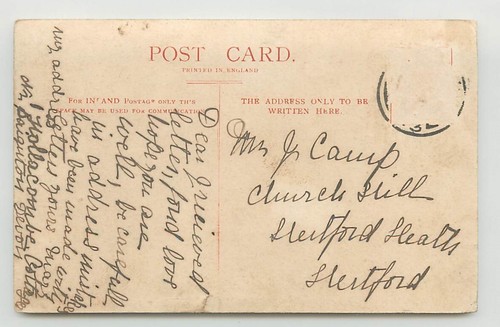 POST CARD.
PRINTED IN ENGLAND
FOR INLAND POSTAGE ONLY THIS
SPACE MAY BE USED FOR COMMUNICATION
THE ADDRESS ONLY TO BE
WRITTEN HERE.
Dear J recieved
letter, fond love
hope you are
well, be carefull
in address mistake
have been made with
letters yours Mary
my address
Hollacombe Cottage
Nr Paignton Devon
Mrs J Camp
Church Hill
Hertford Heath
Hertford